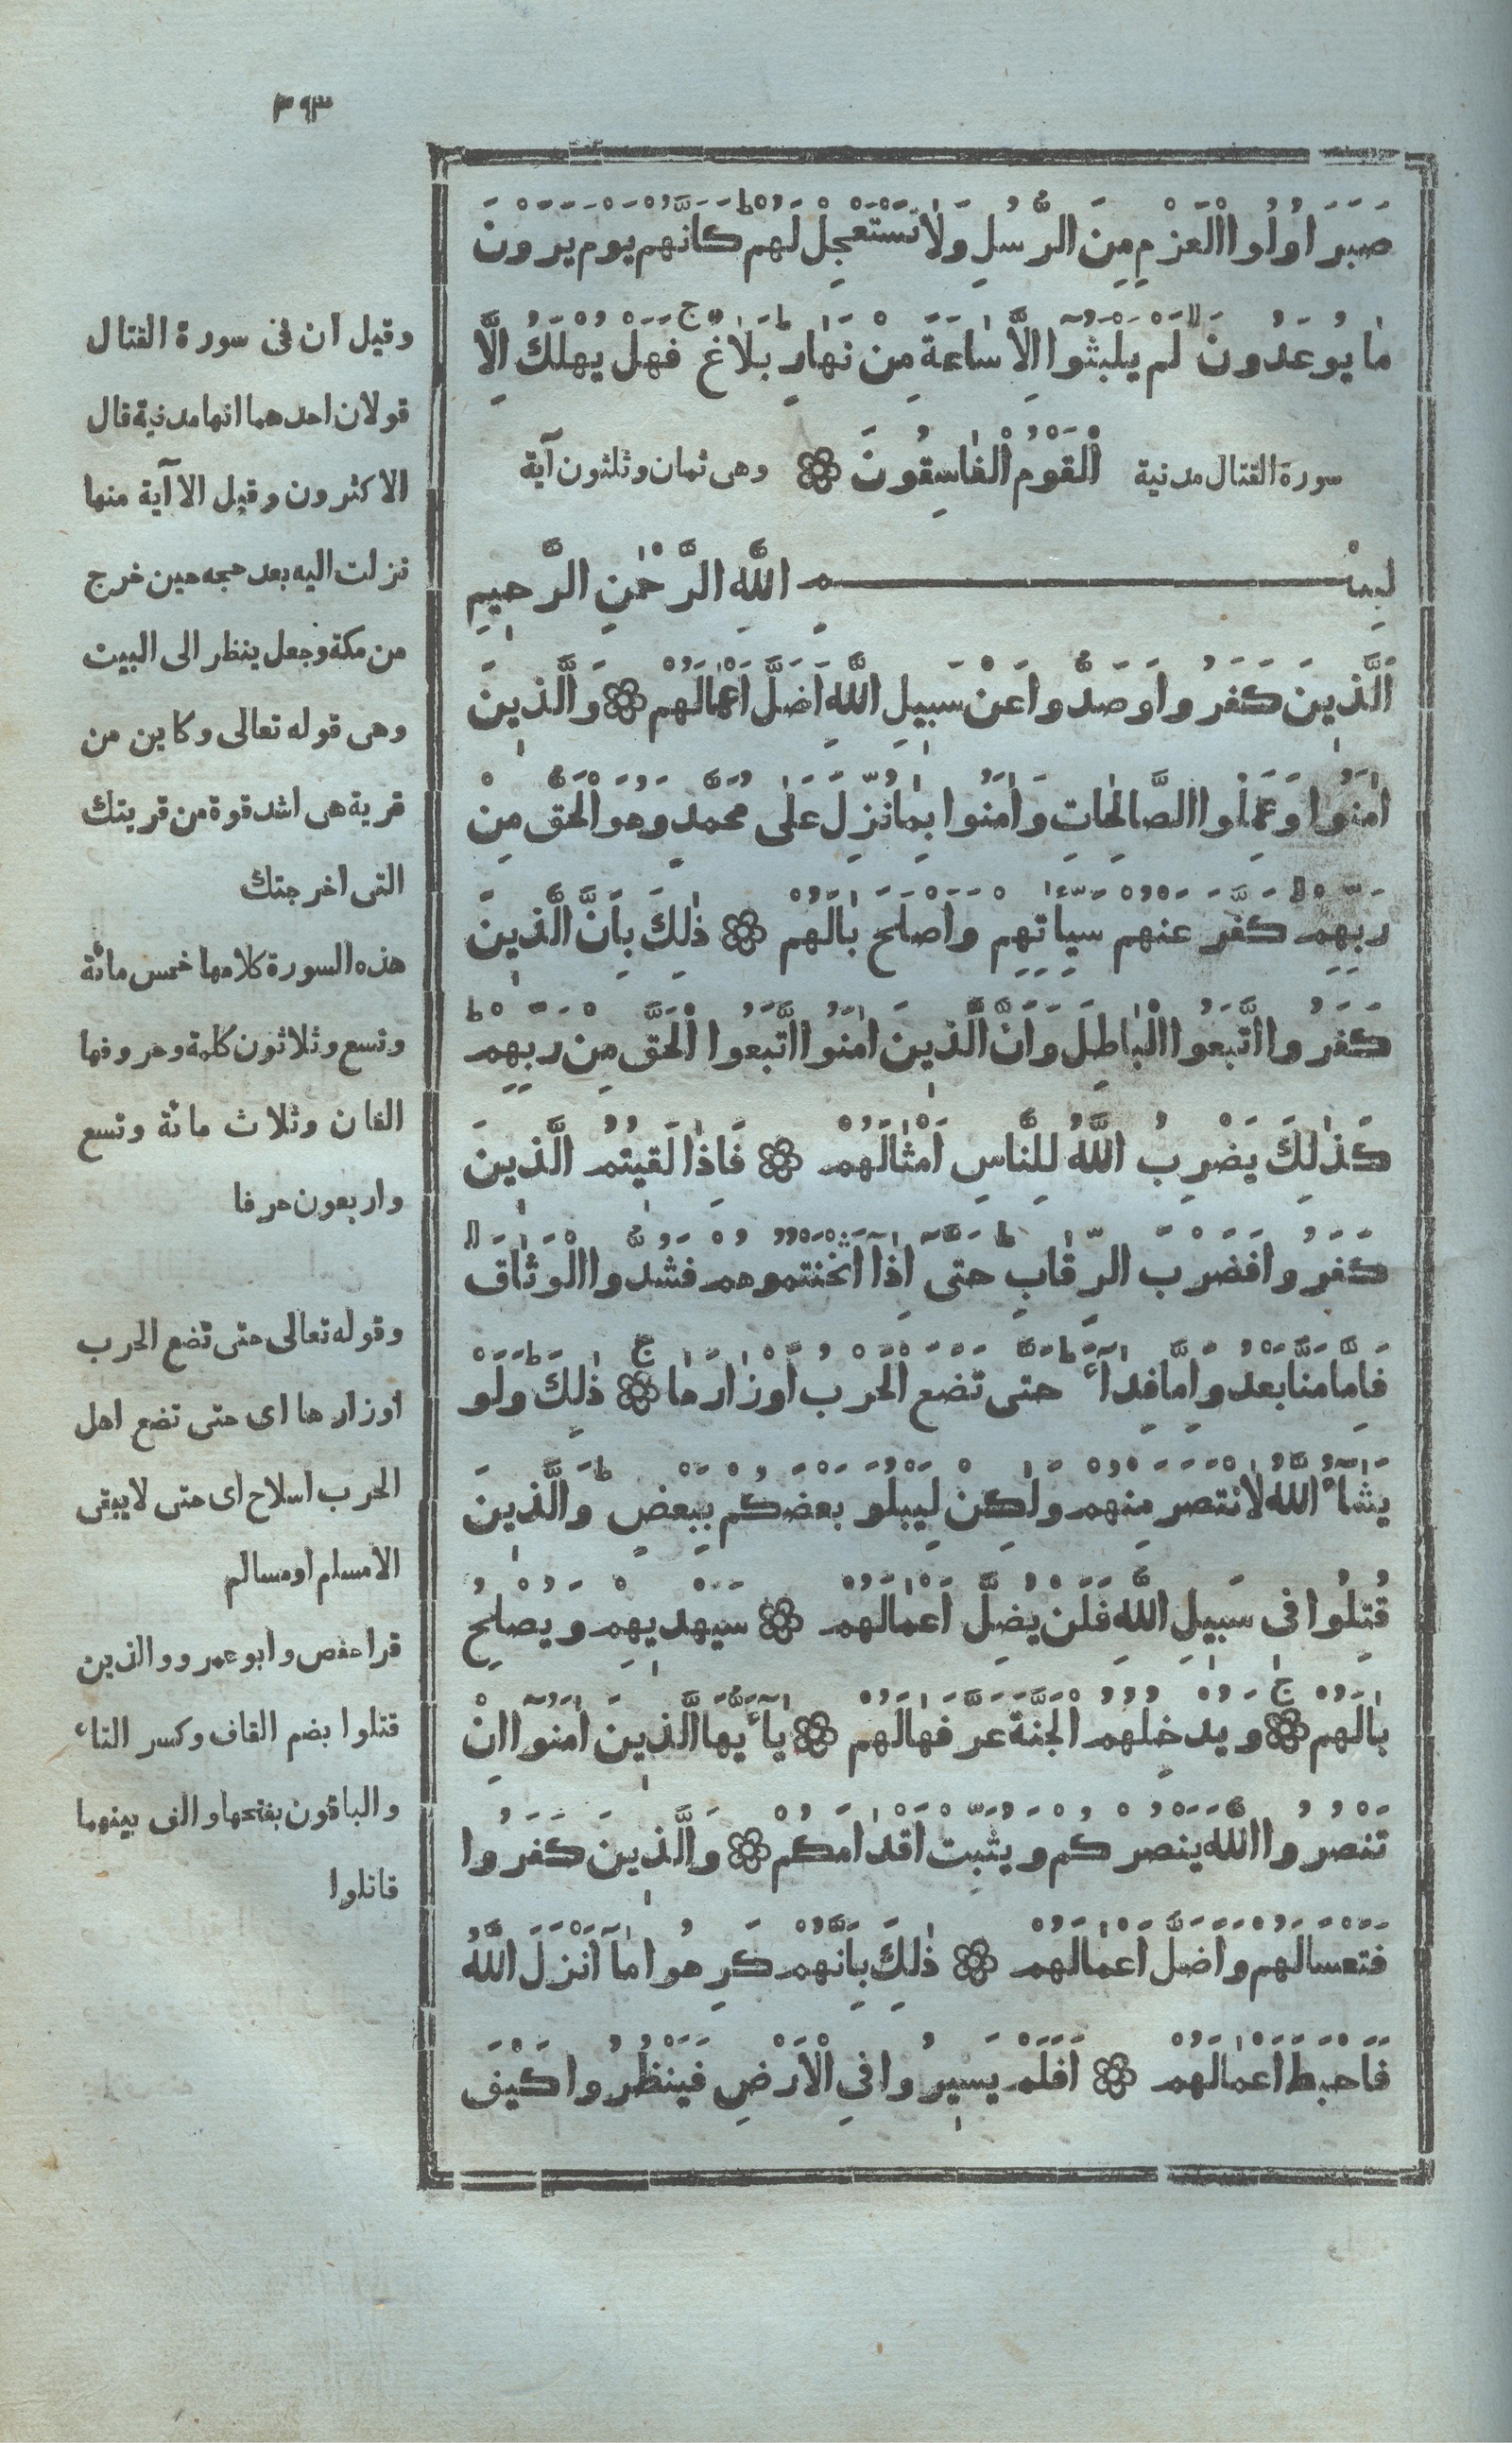 ٣٩٣
صَبَرَ اُولُوا الْعَزْمِ مِنَ الرُّسُلِ وَلَا تَسْتَعْجِلْ لَهُمْ ط كَاَنَّهُمْ يَوْمَ يَرَوْنَ
مٰا يُوعَدُونَ لا لَمْ يَلْبَثُوٓا اِلَّا سٰاعَةً مِنْ نَهٰارٍ ط بَلٰاغٌ ج فَهَلْ يُهْلَكُ اِلَّا
سورة القتال مدنية الْقَوْمُ الْفٰاسِقُونَ وهى ثمان وثلثون آية
بِسْمِ اللّٰهِ الرَّحْمٰنِ الرَّحِيمِ
اَلَّذِينَ كَفَرُوا وَصَدُّوا عَنْ سَبِيلِ اللّٰهِ اَضَلَّ اَعْمٰالَهُمْ وَالَّذِينَ
اٰمَنُوا وَعَمِلُوا الصَّالِحٰاتِ وَاٰمَنُوا بِمٰا نُزِّلَ عَلٰى مُحَمَّدٍ وَهُوَ الْحَقُّ مِنْ
رَبِّهِمْ لا كَفَّرَ عَنْهُمْ سَيِّاٰتِهِمْ وَاَصْلَحَ بٰالَهُمْ ذٰلِكَ بِاَنَّ الَّذِينَ
كَفَرُوا اتَّبَعُوا الْبٰاطِلَ وَاَنَّ الَّذِينَ اٰمَنُوا اتَّبَعُوا الْحَقَّ مِنْ رَبِّهِمْ ط
كَذٰلِكَ يَضْرِبُ اللّٰهُ لِلنَّاسِ اَمْثٰالَهُمْ فَاِذٰا لَقِيتُمُ الَّذِينَ
كَفَرُوا فَضَرْبَ الرِّقٰابِ ط حَتَّى اِذٰٓا اَثْخَنْتُمُوهُمْ فَشُدُّوا الْوَثٰاقَ لا
فَاِمَّا مَنًّا بَعْدُ وَاِمَّا فِدٰآءً ط حَتَّى تَضَعَ الْحَرْبُ اَوْزٰارَهٰا ج ذٰلِكَ ط وَلَوْ
يَشٰآءُ اللّٰهُ لَانْتَصَرَ مِنْهُمْ وَلٰكِنْ لِيَبْلُوَ بَعْضَكُمْ بِبَعْضٍ ط وَالَّذِينَ
قُتِلُوا فِى سَبِيلِ اللّٰهِ فَلَنْ يُضِلَّ اَعْمٰالَهُمْ سَيَهْدِيهِمْ وَيُصْلِحُ
بٰالَهُمْ ج وَيُدْخِلُهُمُ الْجَنَّةَ عَرَّفَهٰا لَهُمْ يٰآ اَيُّهَا الَّذِينَ اٰمَنُوٓا اِنْ
تَنْصُرُوا اللّٰهَ يَنْصُرْكُمْ وَيُثَبِّتْ اَقْدٰامَكُمْ وَالَّذِينَ كَفَرُوا
فَتَعْسًا لَهُمْ وَاَضَلَّ اَعْمٰالَهُمْ ذٰلِكَ بِاَنَّهُمْ كَرِهُوا مٰآ اَنْزَلَ اللّٰهُ
فَاَحْبَطَ اَعْمٰالَهُمْ اَفَلَمْ يَسِيرُوا فِى الْاَرْضِ فَيَنْظُرُوا كَيْفَ
وقيل ان فى سورة القتال
قولان احدهما انها مدنية قال
الاكثرون وقيل الا آية منها
نزلت اليه بعد حجه حين خرج
من مكة وجعل ينظر الى البيت
وهى قوله تعالى وكاين من
قرية هى اشد قوة من قريتك
التى اخرجتك
هذه السورة كلامها خمس مائة
وتسع وثلاثون كلمة وحروفها
الفان وثلاث مائة وتسع
واربعون حرفا
وقوله تعالى حتى تضع الحرب
اوزارها اى حتى تضع اهل
الحرب اسلاح اى حتى لا يبقى
الا مسلم او مسالم
قرا حفص وابو عمرو والذين
قتلوا بضم القاف وكسر التاء
والباقون بفتحها والف بينهما
قاتلوا